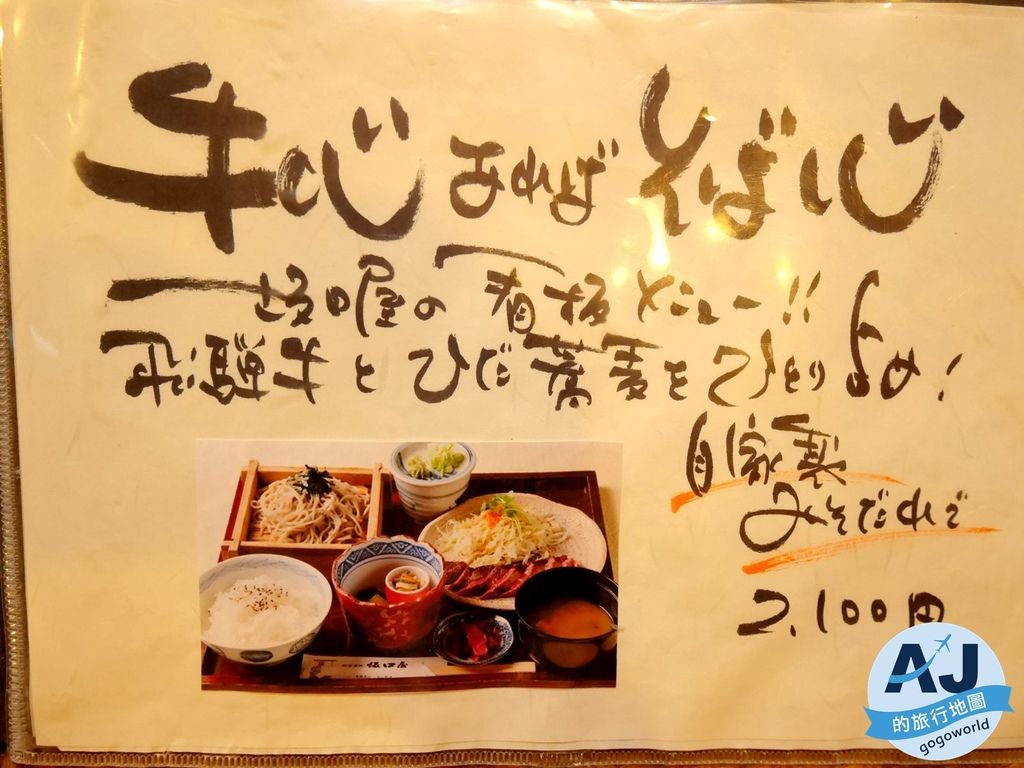 牛心あればそば心
坂口屋の看板メニュー!!
飛騨牛とひだ蕎麦をひとり占め!
自家製
みそだれで
2,100円
坂口屋
AJ
的旅行地圖
gogoworld